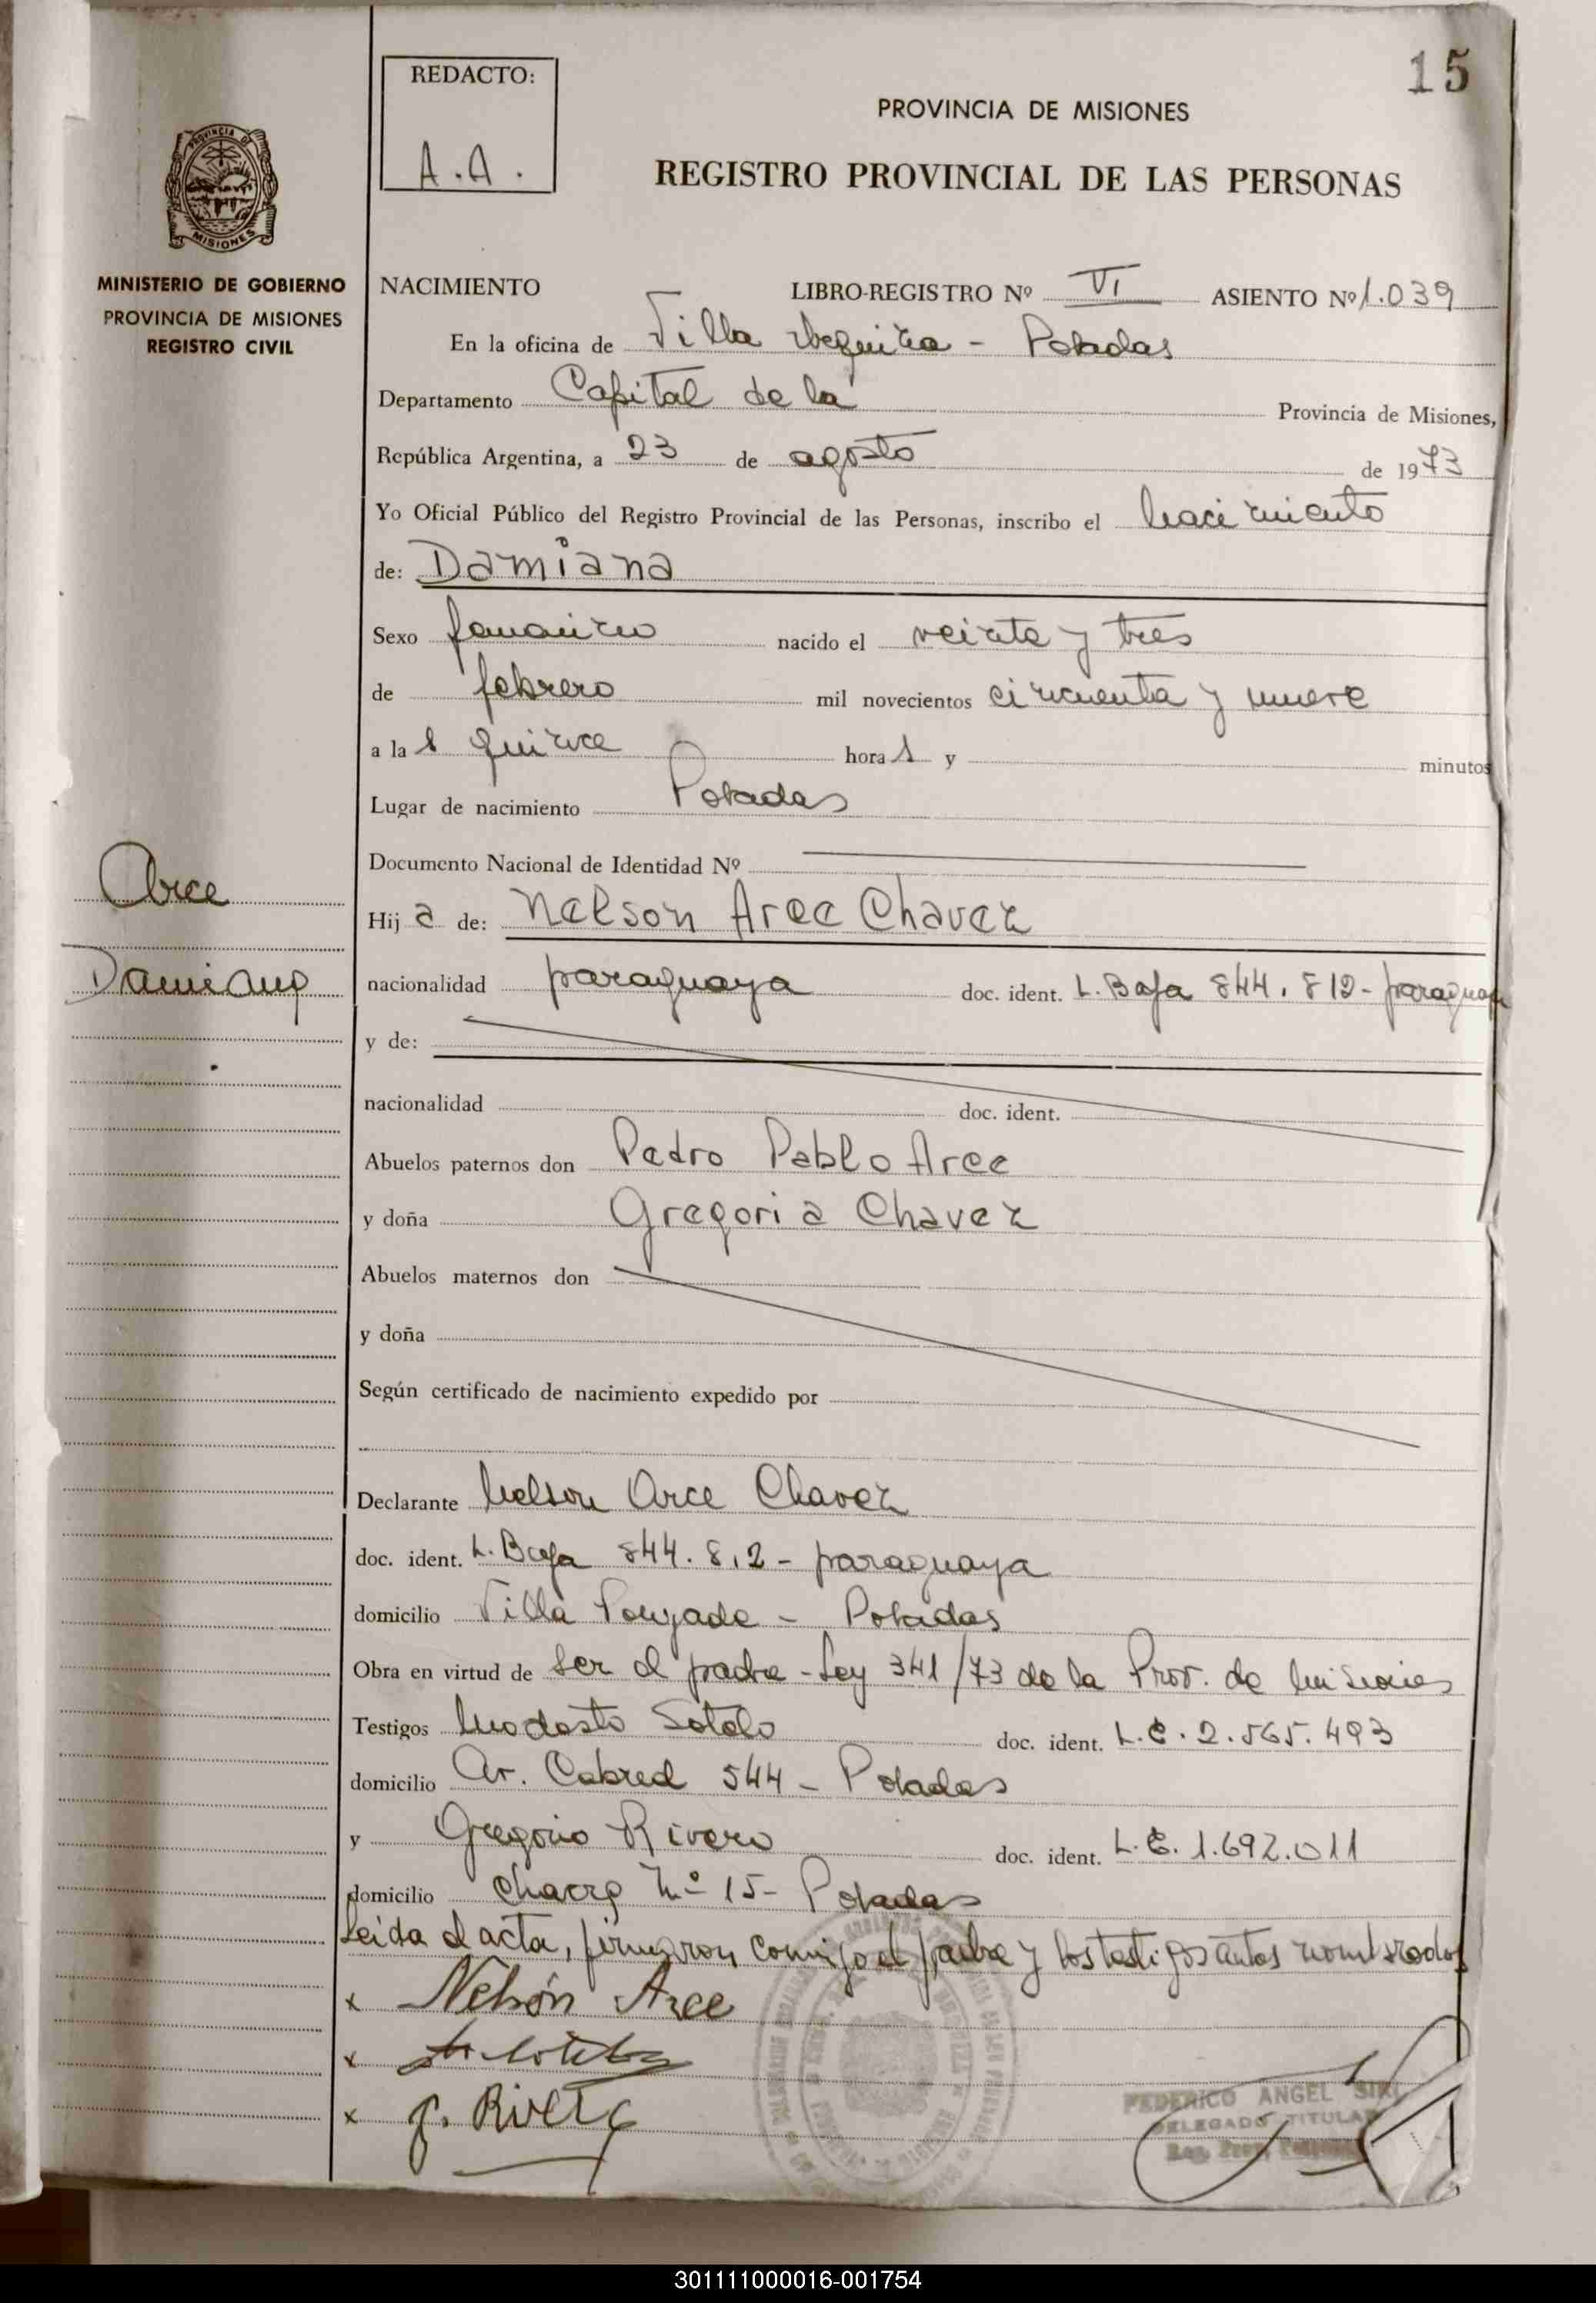 15
REDACTO:
A.A.
PROVINCIA DE MISIONES
REGISTRO PROVINCIAL DE LAS PERSONAS
PROVINCIA DE
MISIONES
MINISTERIO DE GOBIERNO
PROVINCIA DE MISIONES
REGISTRO CIVIL
NACIMIENTO LIBRO-REGISTRO Nº VI ASIENTO Nº 1.039
En la oficina de Villa Urquiza - Posadas
Departamento Capital de la Provincia de Misiones,
República Argentina, a 23 de agosto de 1973
Yo Oficial Público del Registro Provincial de las Personas, inscribo el nacimiento
de: Damiana
Sexo femenino nacido el veinte y tres
de febrero mil novecientos cincuenta y nueve
a la s quince hora s y minutos
Lugar de nacimiento Posadas
Documento Nacional de Identidad Nº
Arce
Damiana
Hij a de: Nelson Arce Chavez
nacionalidad paraguaya doc. ident. L. Baja 844.812 - paraguaya
y de:
nacionalidad doc. ident.
Abuelos paternos don Pedro Pablo Arce
y doña Gregoria Chavez
Abuelos maternos don
y doña
Según certificado de nacimiento expedido por
Declarante Nelson Arce Chavez
doc. ident. L. Baja 844.812 - paraguaya
domicilio Villa Poujade - Posadas
Obra en virtud de ser el padre - Ley 341/73 de la Prov. de Misiones
Testigos Modesto Sotelo doc. ident. L.E. 2.565.493
domicilio Av. Cabred 544 - Posadas
y Gregorio Rivero doc. ident. L.E. 1.692.011
domicilio Chacra Nº 15 - Posadas
Leida el acta, firmaron conmigo el padre y los testigos antes nombrados
x Nelsón Arce
x
x g. Rivero
FEDERICO ANGEL
DELEGADO TITULAR
301111000016-001754